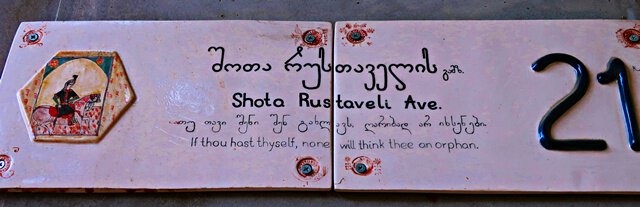 შოთა რუსთაველის გამზ.
Shota Rustaveli Ave.
თუ თავი შენი შენ გახლავს, ღარიბად არ იხსენები.
If thou hast thyself, none will think thee an orphan.
21